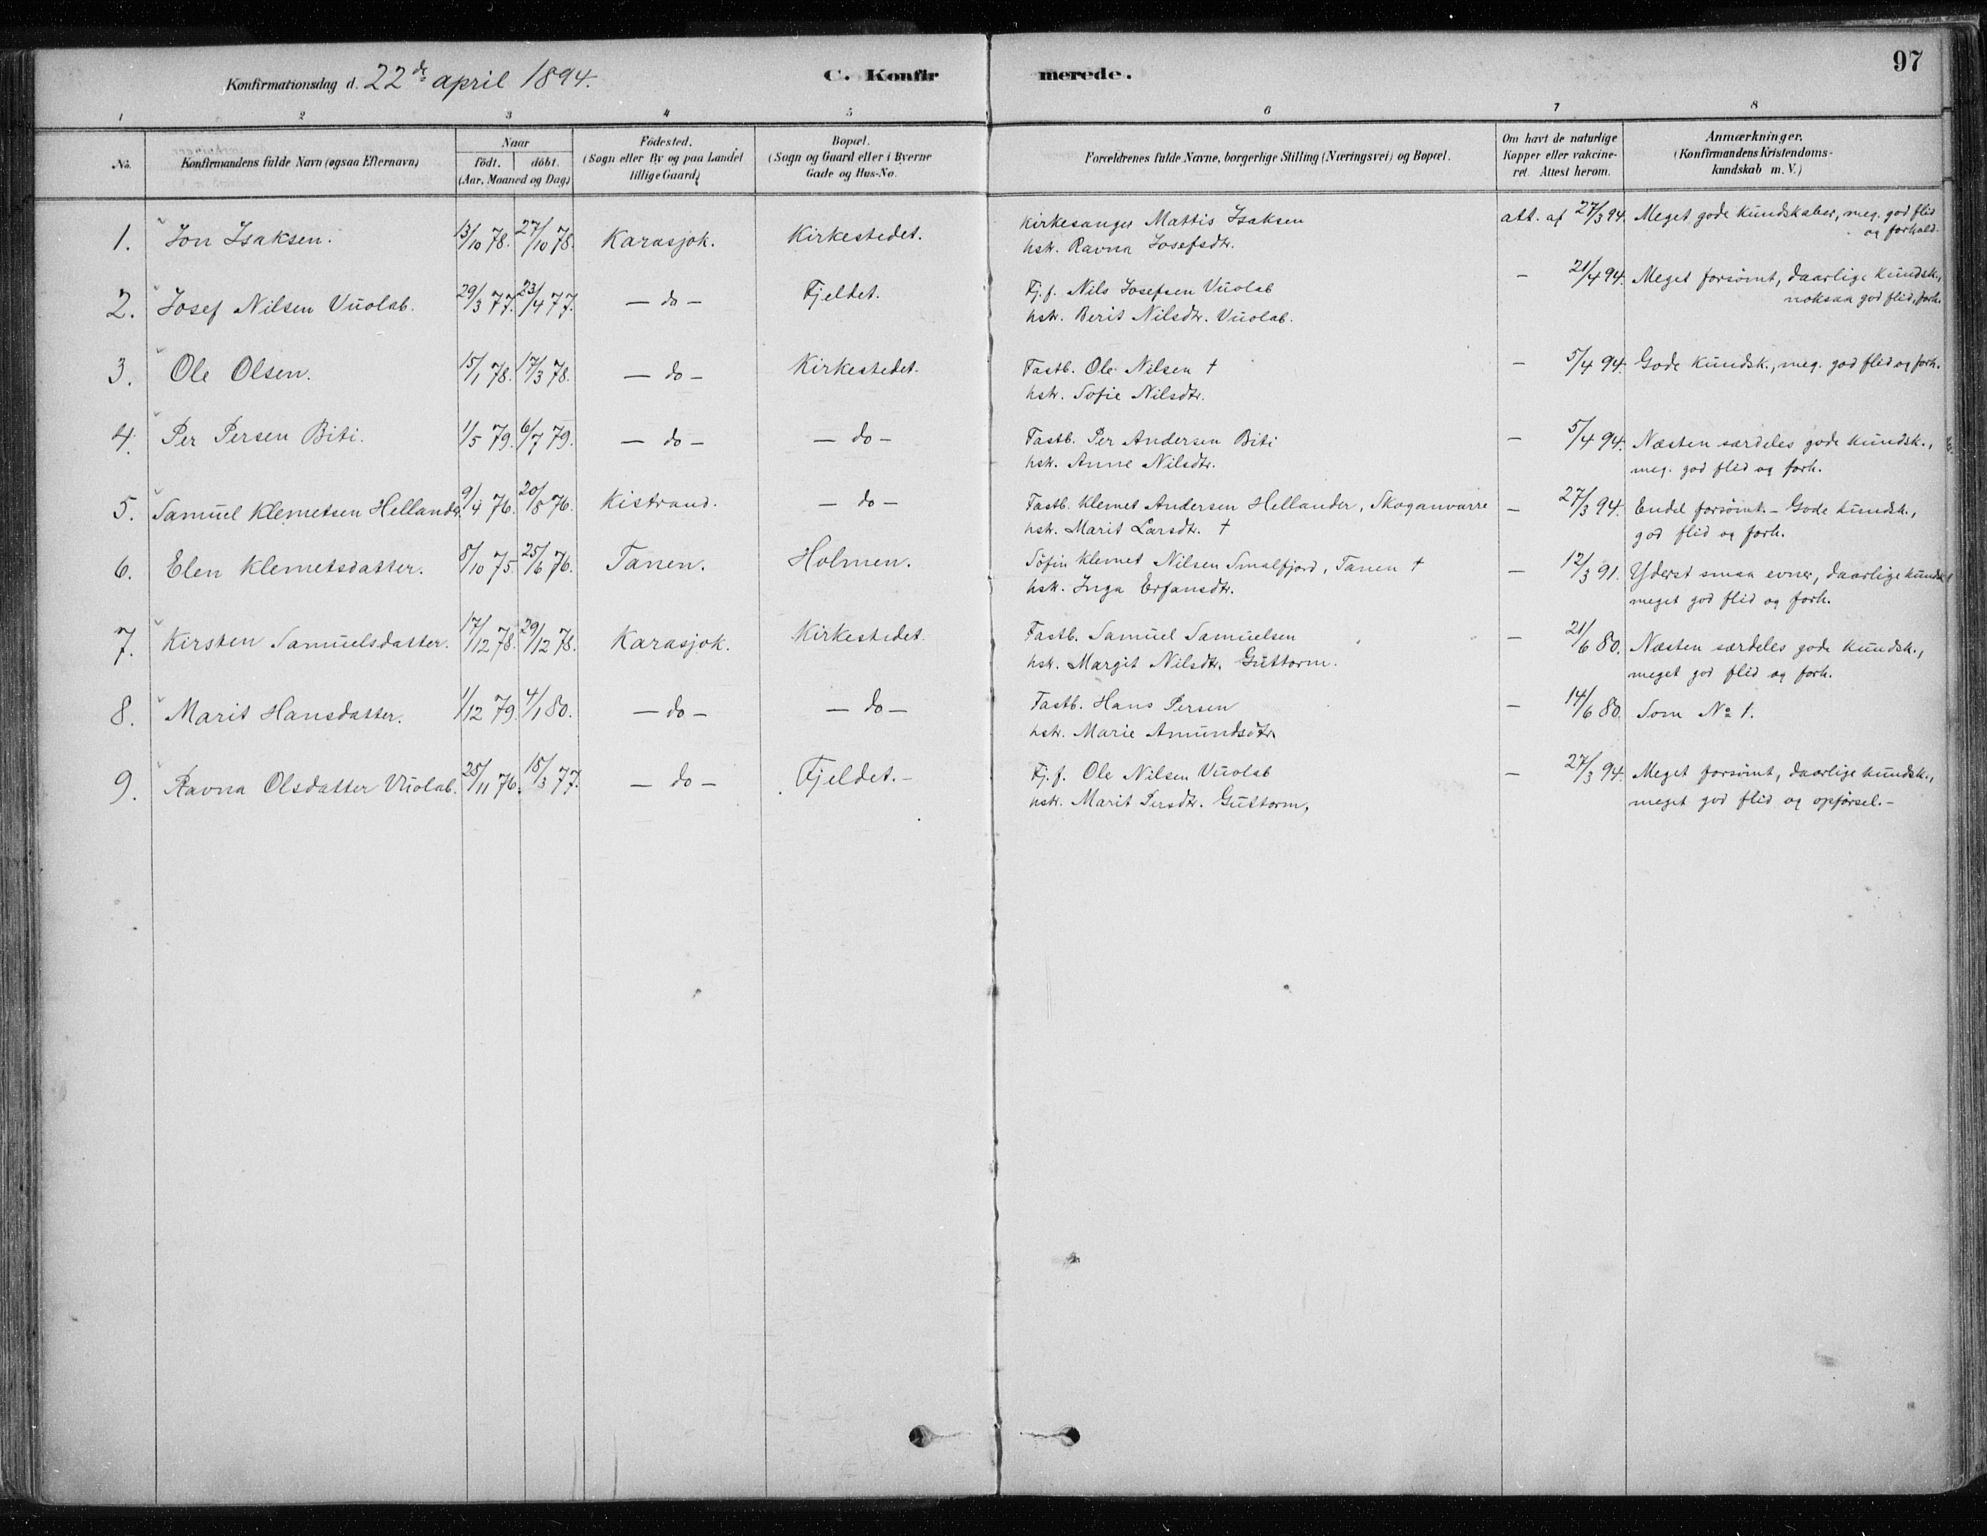 97
Konfirmationsdag d. 22de april 1894. C. Konfirmerede.
1 2 3 4 5 6 7 8
No. Konfirmandens fulde Navn (ogsaa Efternavn) Naar födt. döbt. (Aar, Maaned og Dag) Födested. (Sogn eller By og paa Landet tillige Gaard) Bopæl. (Sogn og Gaard eller i Byerne Gade og Hus-No. Forældrenes fulde Navne, borgerlige Stilling (Næringsvei) og Bopæl. Om havt de naturlige Kopper eller vakcineret. Attest herom. Anmærkninger. (Konfirmandens Kristendomskundskab m. V.)
1. Jon Isaksen. 13/10 78. 27/10 78. Karasjok. Kirkestedet. Kirkesanger Mattis Isaksen att. af 27/3 94. Meget gode kundskaber, meg. god flid
hstr. Ravna Josefsdtr. og forhold.
2. Josef Nilsen Vuolab. 29/3 77. 23/4 77. — do — Fjeldet. Fj.f. Nils Josefsen Vuolab — 21/4 94. Meget forsömt, daarlige kundsk.,
hstr. Berit Nilsdtr. Vuolab. noksaa god flid, forh.
3. Ole Olsen. 15/1 78. 17/3 78. — do — Kirkestedet. Fastb. Ole Nilsen † — 5/4 94. Gode kundsk., meg. god flid og forh.
hstr. Sofie Nilsdtr.
4. Per Persen Biti. 1/5 79. 6/7 79. — do — — do — Fastb. Per Andersen Biti — 5/4 94. Næsten særdeles gode kundsk.,
hstr. Anne Nilsdtr. meg. god flid og forh.
5. Samuel Klemetsen Hellander. 9/4 76. 20/8 76. Kistrand. — do — Fastb. Klemet Andersen Hellander, Skoganvarre — 27/3 94. Endel forsömt. — Gode kundsk.,
hstr. Marit Larsdtr. † god flid og forh.
6. Elen Klemetsdatter. 8/10 75. 25/6 76. Tanen. Holmen. Söfin Klemet Nilsen Smalfjord, Tanen † — 12/3 91. Yderst smaa evner, daarlige kundsk.
hstr. Inga Erfansdtr. meget god flid og forh.
7. Kirsten Samuelsdatter. 17/12 78. 29/12 78. Karasjok. Kirkestedet. Fastb. Samuel Samuelsen — 21/6 80. Næsten særdeles gode kundsk.,
hstr. Margit Nilsdtr. Guttorm. meget god flid og forh.
8. Marit Hansdatter. 1/12 79. 4/1 80. — do — — do — Fastb. Hans Persen — 14/6 80. Som No 1.
hstr. Marie Amundsdtr.
9. Ravna Olsdatter Vuolab. 25/11 76. 18/3 77. — do — Fjeldet. — Fj.f. Ole Nilsen Vuolab — 27/3 94. Meget forsömt, daarlige kundsk.,
hstr. Marit Persdtr. Guttorm, meget god flid og opförsel. —